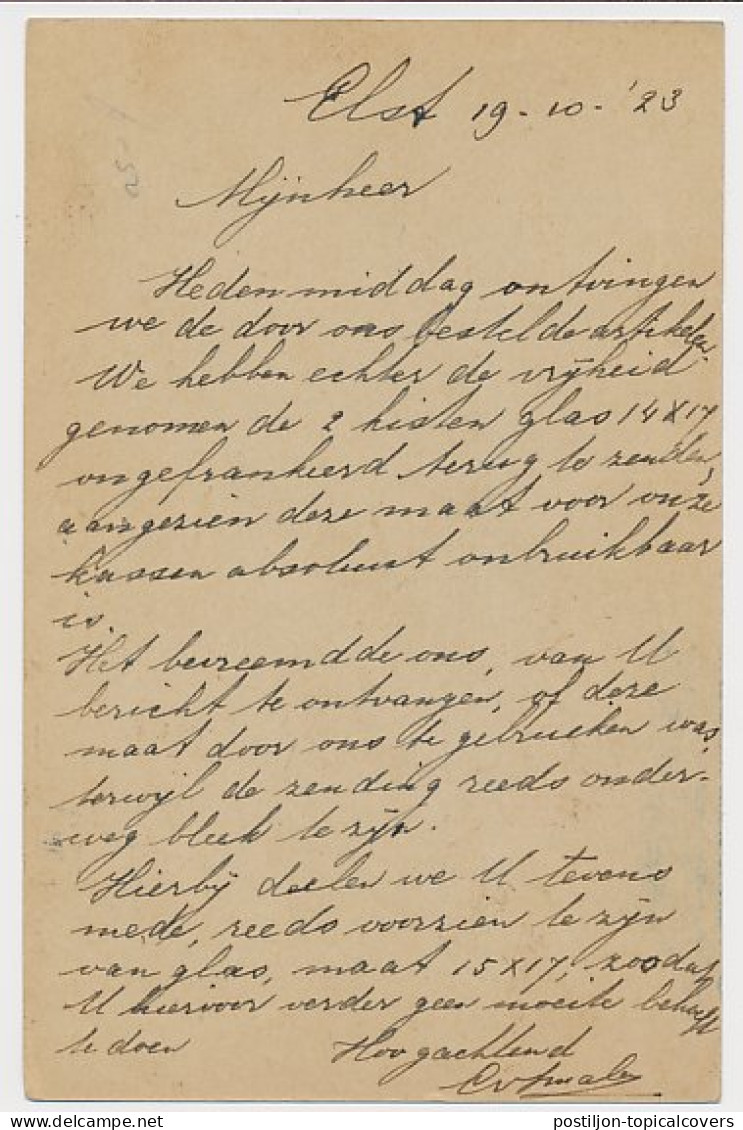 Elst 19-10-'23
Mijnheer
Hedenmiddag ontvingen
we de door ons bestelde artikelen.
We hebben echter de vrijheid
genomen de 2 kisten glas 14 X 17
ongefrankeerd terug te zenden,
aangezien deze maat voor onze
kassen absoluut onbruikbaar
is.
Het bevreemdde ons, van U
bericht te ontvangen, of deze
maat door ons te gebruiken was,
terwijl de zending reeds onder-
weg bleek te zijn.
Hierbij deelen we U tevens
mede, reeds voorzien te zijn
van glas, maat 15 X 17, zoodat
U hiervoor verder geen moeite behoeft
te doen
Hoogachtend
postiljon-topicalcovers
www.delcampe.net